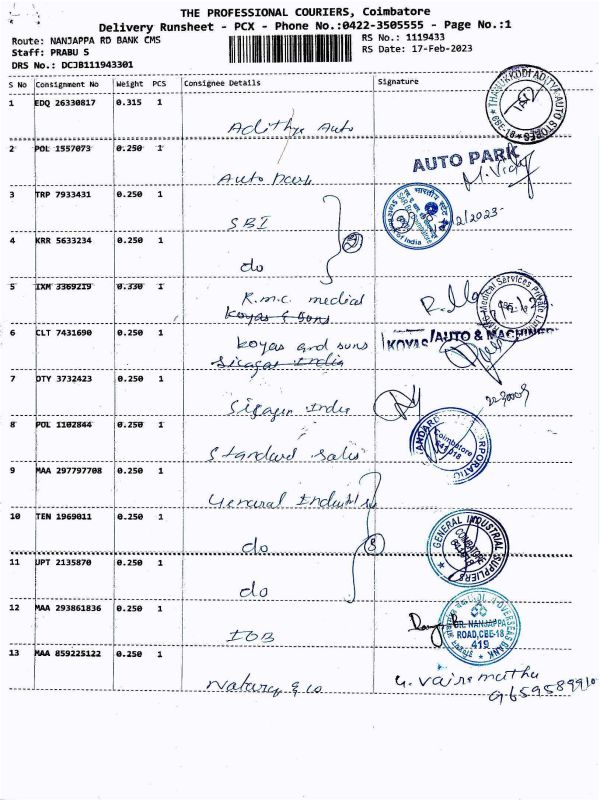 THE PROFESSIONAL COURIERS, Coimbatore
Delivery Runsheet - PCX - Phone No.:0422-3505555 - Page No.:1
Route: NANJAPPA RD BANK CMS
RS No.: 1119433
Staff: PRABU S
RS Date: 17-Feb-2023
DRS No.: DCJB111943301
S No Consignment No Weight PCS Consignee Details Signature
1 EDQ 26330817 0.315 1
Adithya Auto
THANUKKODI ADITYA AUTO STORES CBE-18
2 POL 1557073 0.250 1
Auto Park
AUTO PARK
3 TRP 7933431 0.250 1
SBI
4 KRR 5633234 0.250 1
do
5 IXM 3369219 0.330 1
R.m.c. medical
Koyas & Sons
Medical Services Private
6 CLT 7431690 0.250 1
Koyas and suns
KOYAS AUTO & MACHINER
7 DTY 3732423 0.250 1
8 POL 1102844 0.250 1
Standard Sales
Coimbatore 641018
9 MAA 297797708 0.250 1
General
10 TEN 1969011 0.250 1
do
GENERAL INDUSTRIAL SUPPLIERS
COIMBATORE
11 UPT 2135870 0.250 1
do
12 MAA 293861836 0.250 1
IOB
OVERSEAS BANK
DR. NANJAPPA
ROAD, CBE-18
419
13 MAA 859225122 0.250 1
& co
G. Vairamuthu
9659589910